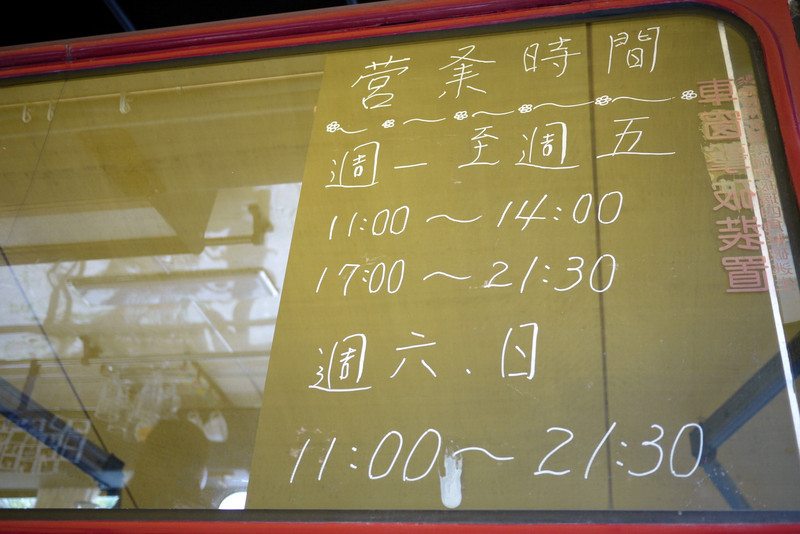 營業時間
週一至週五
11:00~14:00
17:00~21:30
週六、日
11:00~21:30
車窗擊破裝置